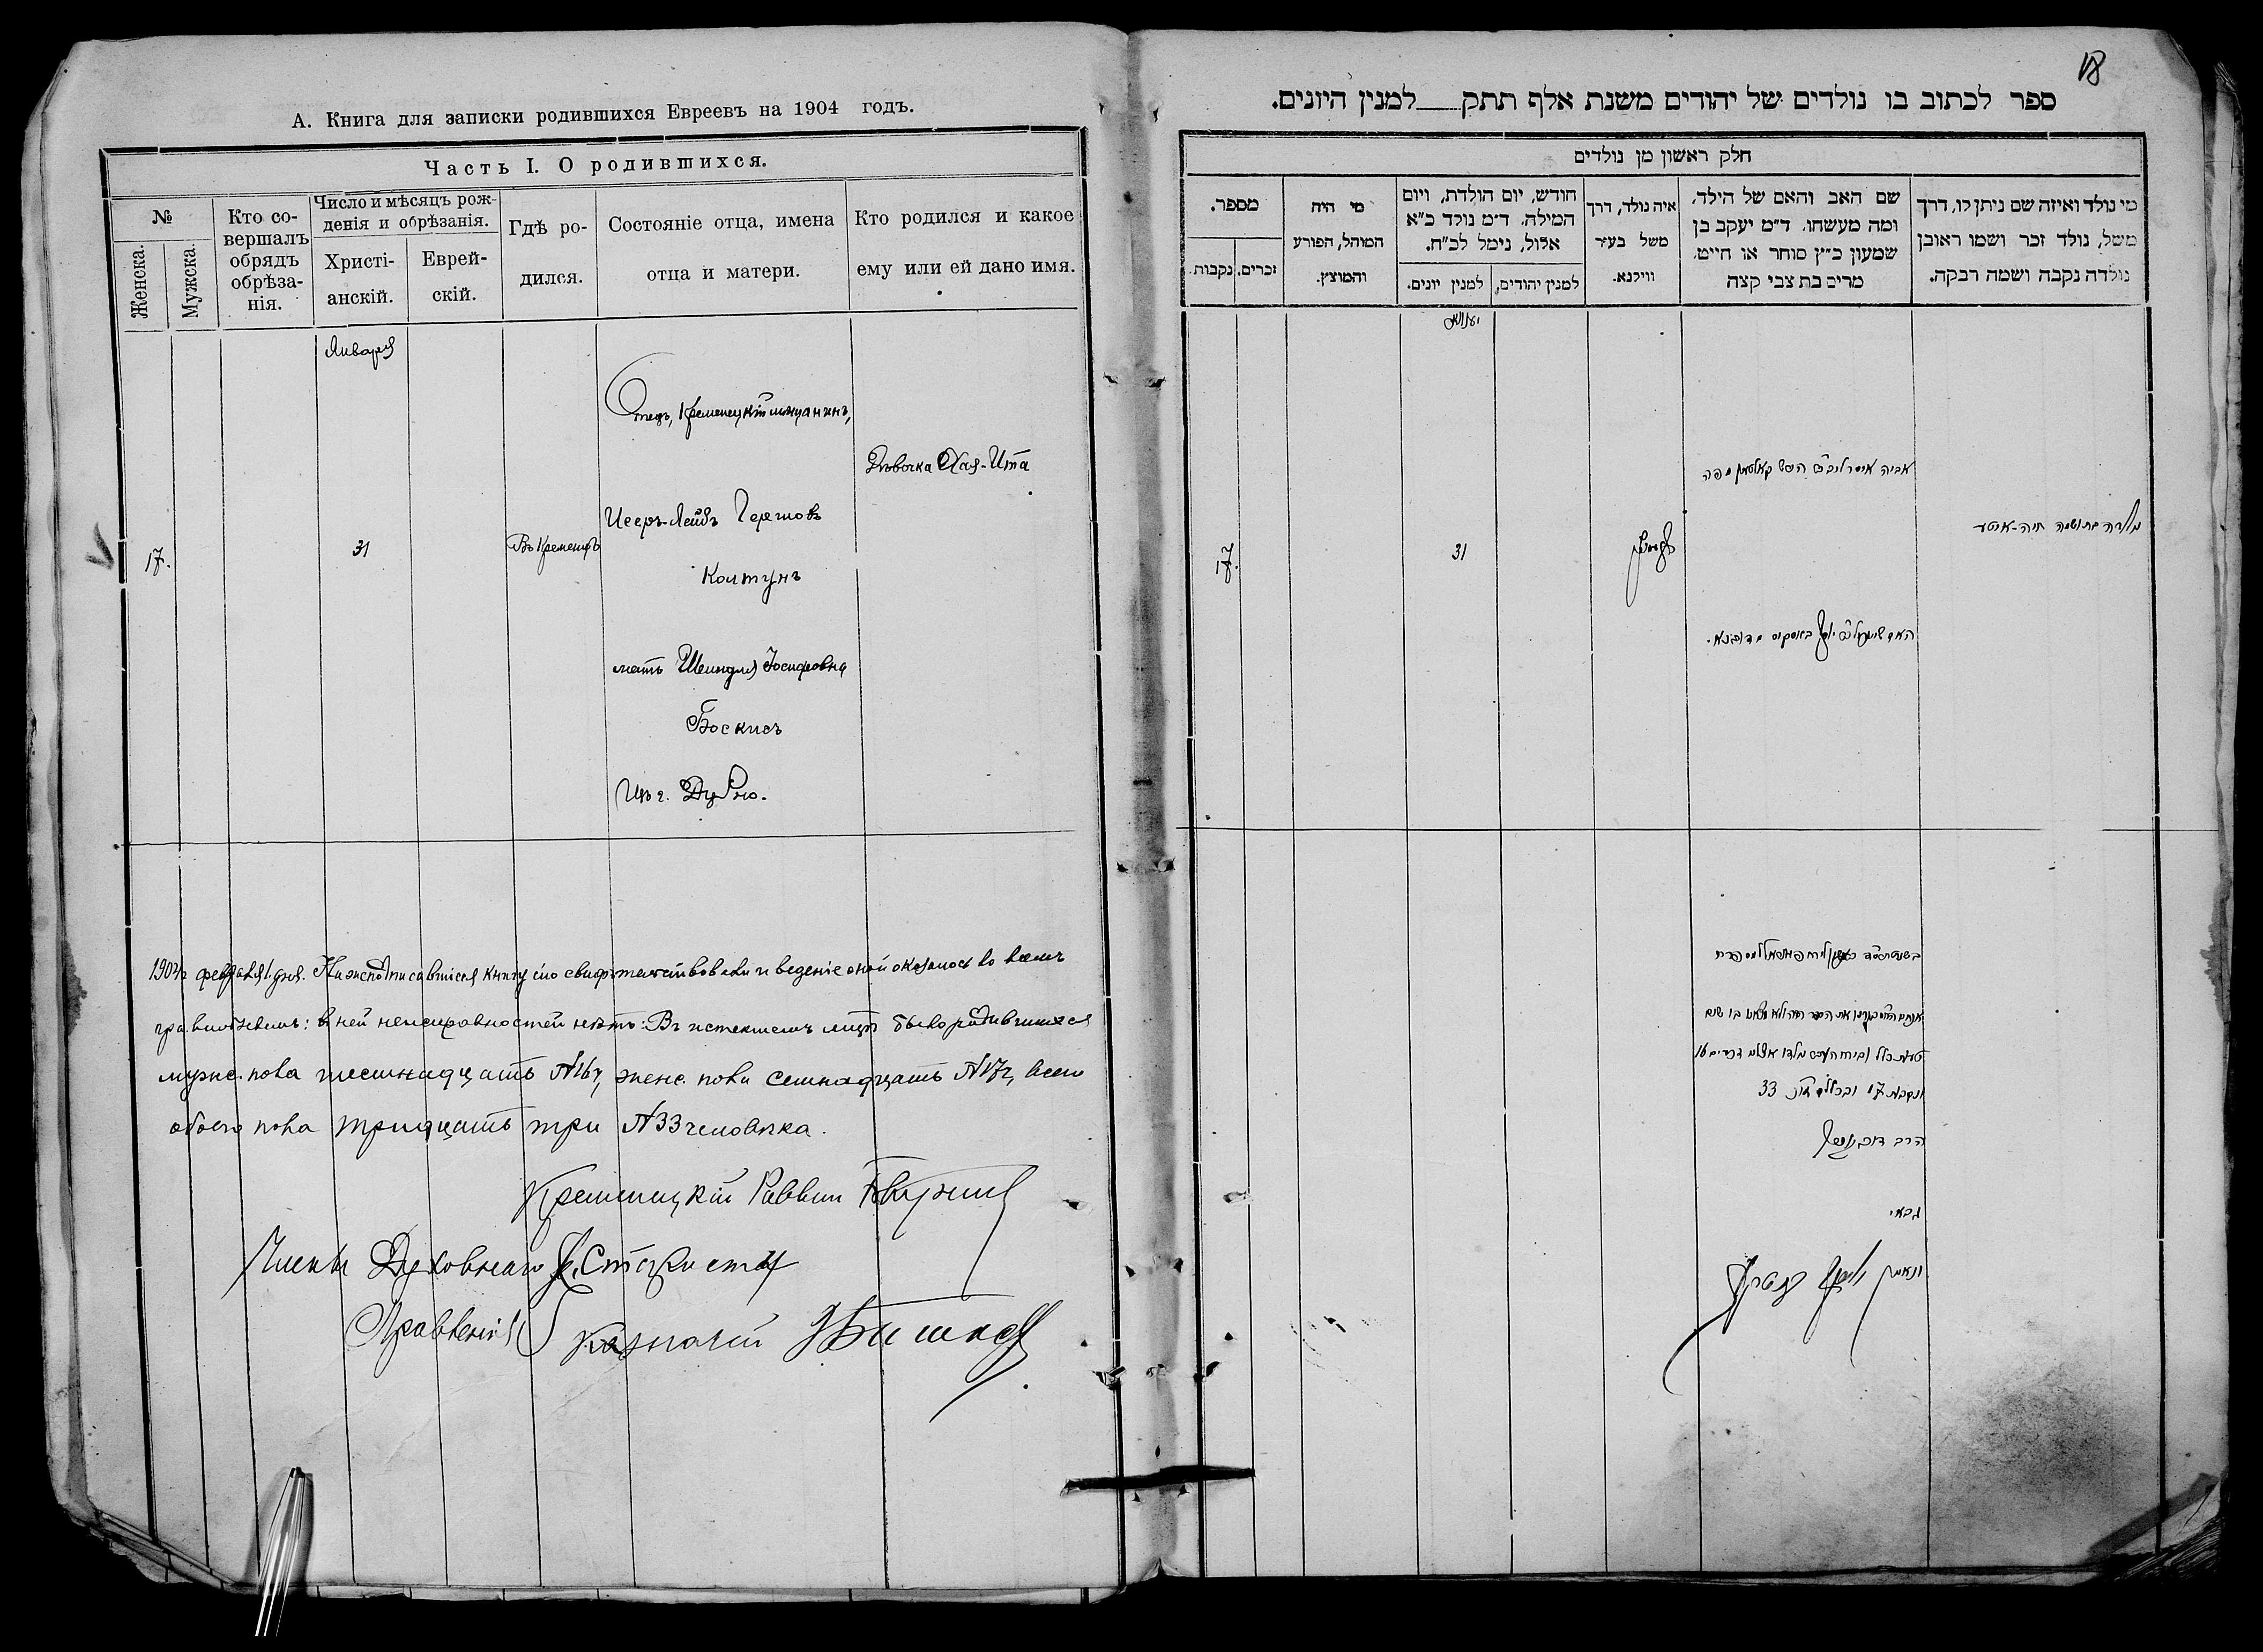 А. Книга для записки родившихся Евреевъ на 1904 годъ.
Часть I. О родившихся.
№
Женска.
Мужска.
Кто со-
вершалъ
обрядъ
обрѣза-
нія.
Число и мѣсяцъ рож-
денія и обрѣзанія.
Христі-
анскій.
Еврей-
скій.
Гдѣ ро-
дился.
Состояніе отца, имена
отца и матери.
Кто родился и какое
ему или ей дано имя.
Января
17.
31
Въ Кременцѣ
Отецъ, Кременецкій мѣщанинъ,
Исеръ-Лейбъ Гершовъ
Колтунъ
мать Шейндля Іосифовна
Боскисъ
Изъ г. Дубно.
Дѣвочка Хая-Ита
1904 г. февраля 1 дня. Нижеподписавшіеся книгу сію свидѣтельствовали и веденіе оной оказалось во всемъ
правильнымъ: в ней неисправностей нѣтъ: Въ истекшемъ мцѣ было родившихся
мужс. пола шестнадцать №16, женс. пола семнадцать №17, всего
обоего пола тридцать три №33 человѣка.
Кременецкій Раввин
Члены Духовнаго Старосты
Правленія Казначей
18
ספר לכתוב בו נולדים של יהודים משנת אלף תתק למנין היונים.
חלק ראשון מן נולדים
מספר.
נקבות.
זכרים.
מי היה
המוהל, הפורע
והמוצץ.
חודש, יום הולדת, ויום
המילה. ד״מ נולד כ״א
אלול, נימל לכ״ח.
למנין יונים.
למנין יהודים.
איה נולד, דרך
משל בעיר
ווילנא.
שם האב והאם של הילד,
ומה מעשהו. ד״מ יעקב בן
שמעון כ״ץ סוחר או חייט,
מרים בת צבי קצה
מי נולד ואיזה שם ניתן לו, דרך
משל, נולד זכר ושמו ראובן
נולדה נקבה ושמה רבקה.
17.
31
אביה איסר ליב ב״ר הירש קאלטאן מפה
נולדה בת ושמה חיה-איטע
האם שיינדל ב״ר יוסף באסקיס מדובנא.
טעות כלל ובירח העבר נולדו אצלם זכרים 16
ונקבות 17 ובכלל 33
הרב
גבאי
ונאמן